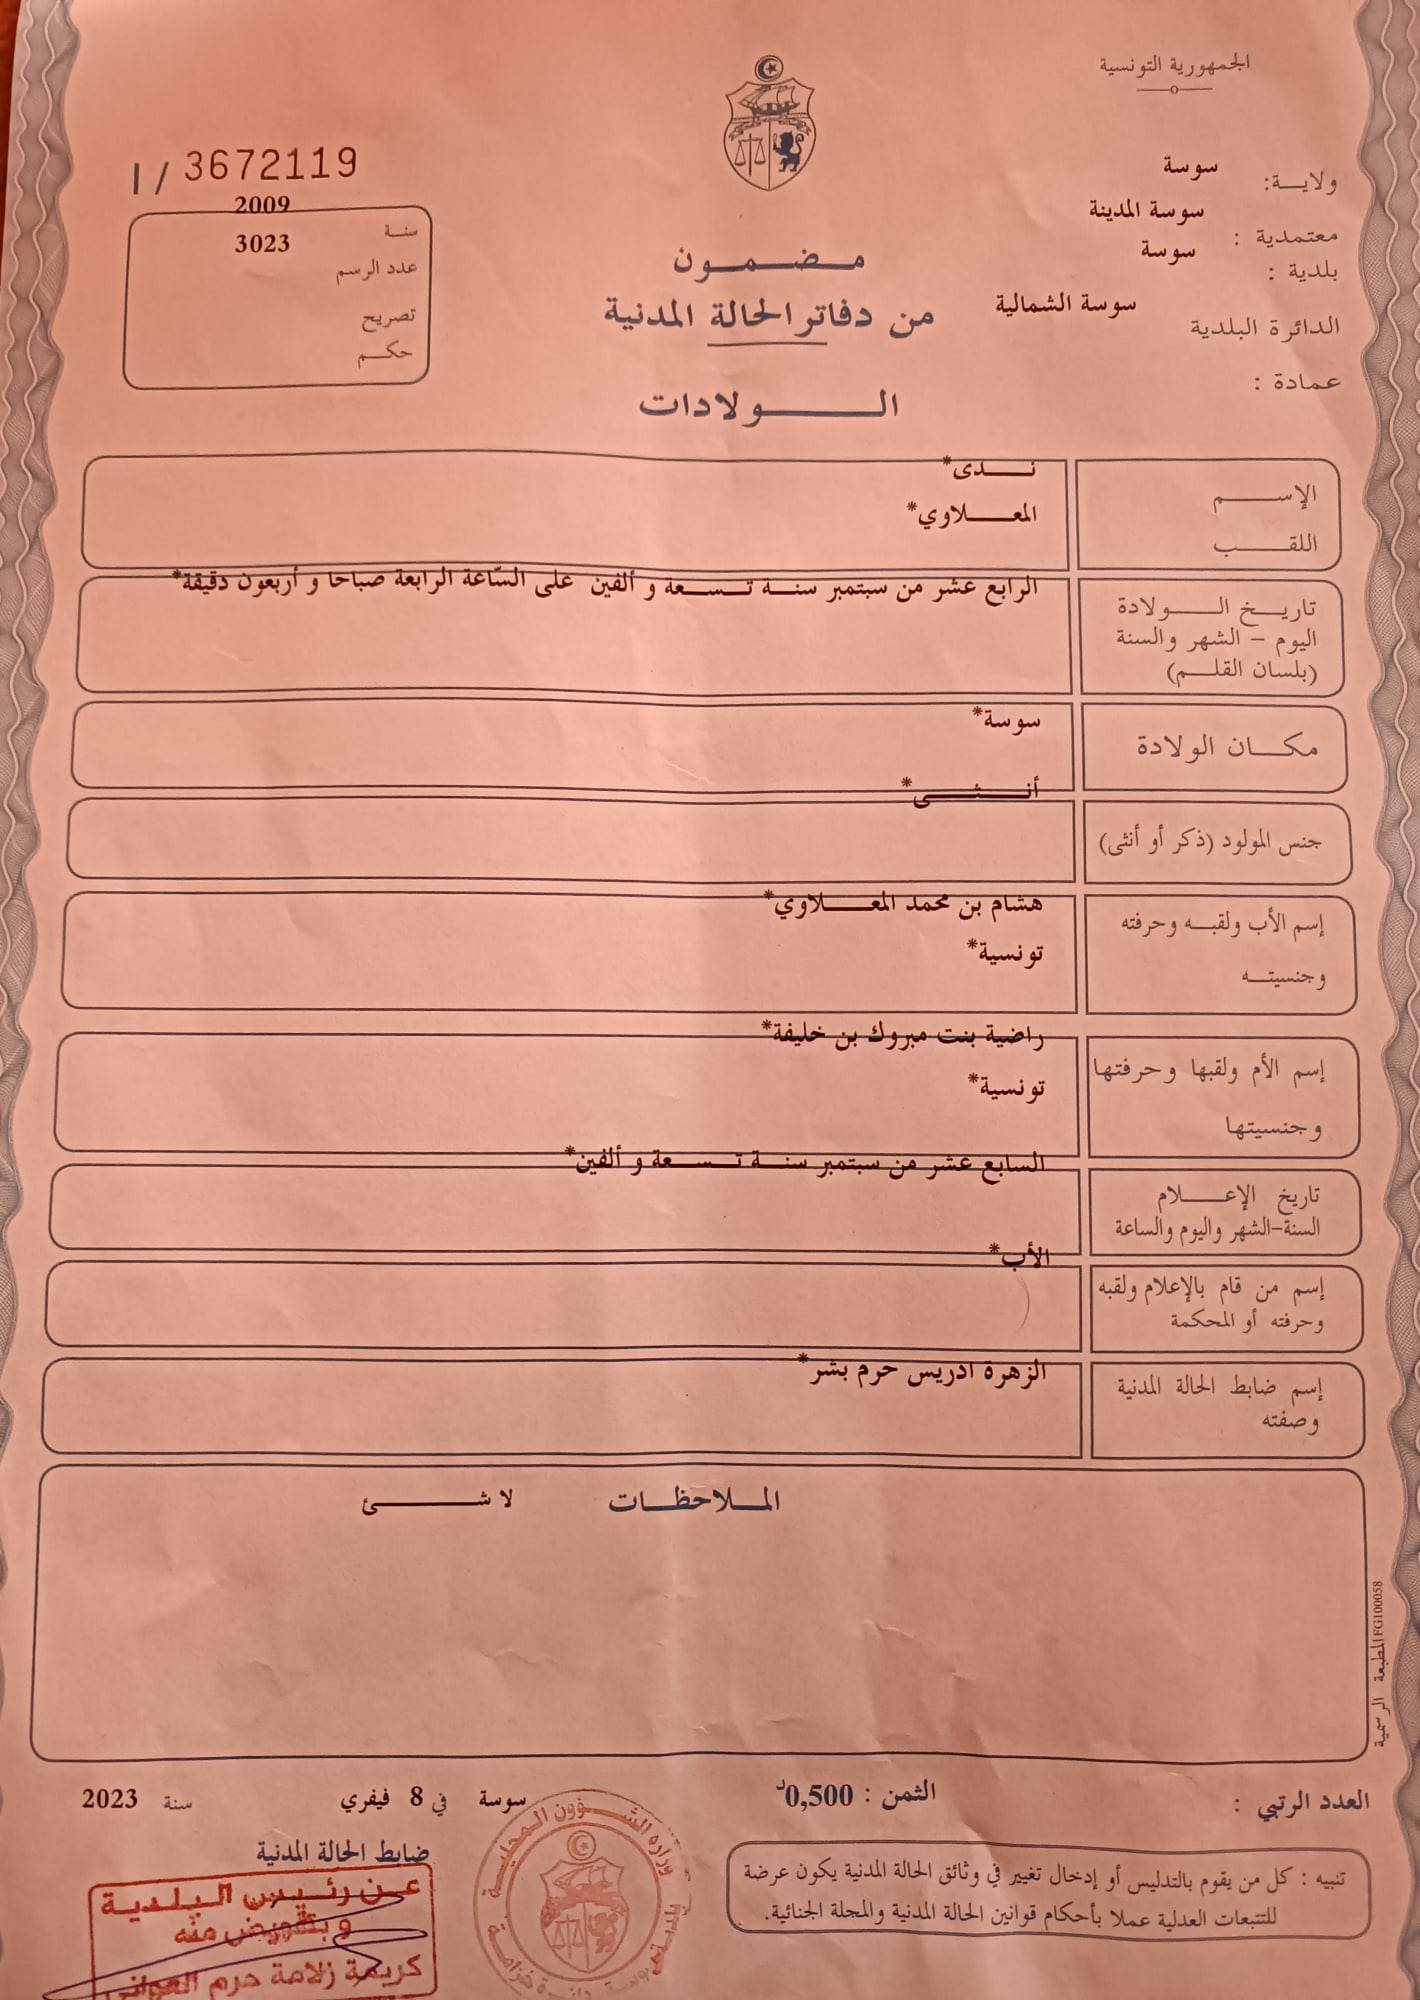 الجمهورية التونسية
ولايـــة: سوسة
معتمدية : سوسة المدينة
بلدية : سوسة
الدائرة البلدية سوسة الشمالية
عمادة :
I / 3672119
سنـة 2009
عدد الرسم 3023
تصريح
حكـــم
مـــضـــمـــون
من دفاتر الحالة المدنية
الـــــولادات
الإســـــم نـــــدى*
اللقـــــب المعـــــلاوي*
تاريـــخ الـــــولادة
اليوم – الشهر والسنة
(بلسان القلـــم)
الرابع عشر من سبتمبر سنـــة تـــســـعة و ألفين على السّاعة الرابعة صباحا و أربعون دقيقة*
مكـــان الولادة سوسة*
جنس المولود (ذكر أو أنثى) أنـــثـــى*
إسم الأب ولقبـــه وحرفته
وجنسيتـــه
هشام بن محمد المعـــــلاوي*
تونسية*
إسم الأم ولقبها وحرفتها
وجنسيتها
راضية بنت مبروك بن خليفة*
تونسية*
تاريخ الإعـــــلام
السنة-الشهر واليوم والساعة
السابع عشر من سبتمبر سنـــة تـــســـعة و ألفين*
إسم من قام بالإعلام ولقبه
وحرفته أو المحكمة
الأب*
إسم ضابط الحالة المدنية
وصفته
الزهرة ادريس حرم بشر*
المـــلاحظـــات لا شـــــئ
المطبعة الرسمية FG100058
العدد الرتبي :
الثمن : 0,500د
سوسة في 8 فيفري سنة 2023
ضابط الحالة المدنية
تنبيه : كل من يقوم بالتدليس أو إدخال تغيير في وثائق الحالة المدنية يكون عرضة
للتتبعات العدلية عملا بأحكام قوانين الحالة المدنية والمجلة الجنائية.
وزارة الشـــؤون المحليـــة
عـن رئـيـس البـلـديـة
و بتفويض منه
كريمة زلامة حرم العواني